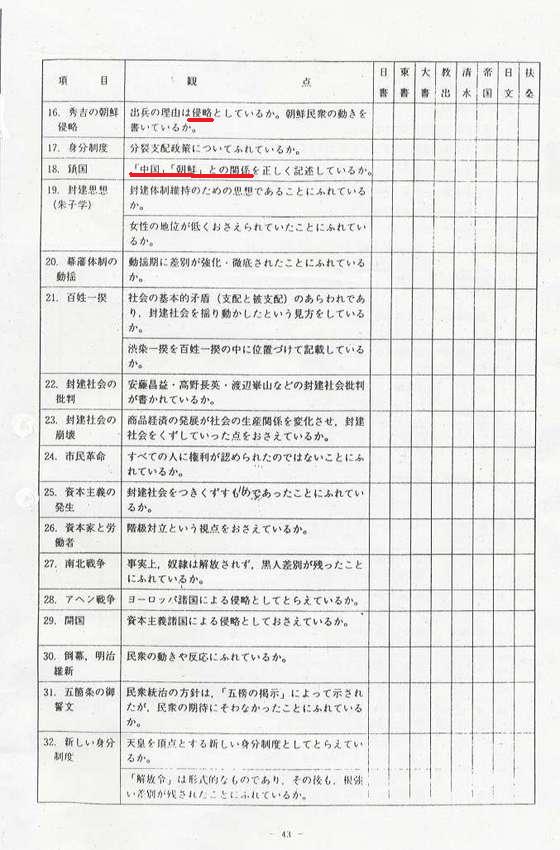 項 目 観 点 日書 東書 大書 教出 清水 帝国 日文 扶桑
16. 秀吉の朝鮮 出兵の理由は侵略としているか。朝鮮民衆の動きを
侵略 書いているか。
17. 身分制度 分裂支配政策についてふれているか。
18. 鎖国 「中国」「朝鮮」との関係を正しく記述しているか。
19. 封建思想 封建体制維持のための思想であることにふれている
(朱子学) か。
女性の地位が低くおさえられていたことにふれてい
るか。
20. 幕藩体制の 動揺期に差別が強化・徹底されたことにふれている
動揺 か。
21. 百姓一揆 社会の基本的矛盾(支配と被支配)のあらわれであ
り,封建社会を揺り動かしたという見方をしている
か。
渋染一揆を百姓一揆の中に位置づけて記載している
か。
22. 封建社会の 安藤昌益・高野長英・渡辺崋山などの封建社会批判
批判 が書かれているか。
23. 封建社会の 商品経済の発展が社会の生産関係を変化させ,封建
崩壊 社会をくずしていった点をおさえているか。
24. 市民革命 すべての人に権利が認められたのではないことにふ
れているか。
25. 資本主義の 封建社会をつきくずすものであったことにふれてい
発生 るか。
26. 資本家と労 階級対立という視点をおさえているか。
働者
27. 南北戦争 事実上,奴隷は解放されず,黒人差別が残ったこと
にふれているか。
28. アヘン戦争 ヨーロッパ諸国による侵略としてとらえているか。
29. 開国 資本主義諸国による侵略としておさえているか。
30. 倒幕,明治 民衆の動きや反応にふれているか。
維新
31. 五箇条の御 民衆統治の方針は,「五榜の掲示」によって示され
誓文 たが,民衆の期待にそわなかったことにふれている
か。
32. 新しい身分 天皇を頂点とする新しい身分制度としてとらえてい
制度 るか。
「解放令」は形式的なものであり,その後も,根強
い差別が残されたことにふれているか。
- 43 -